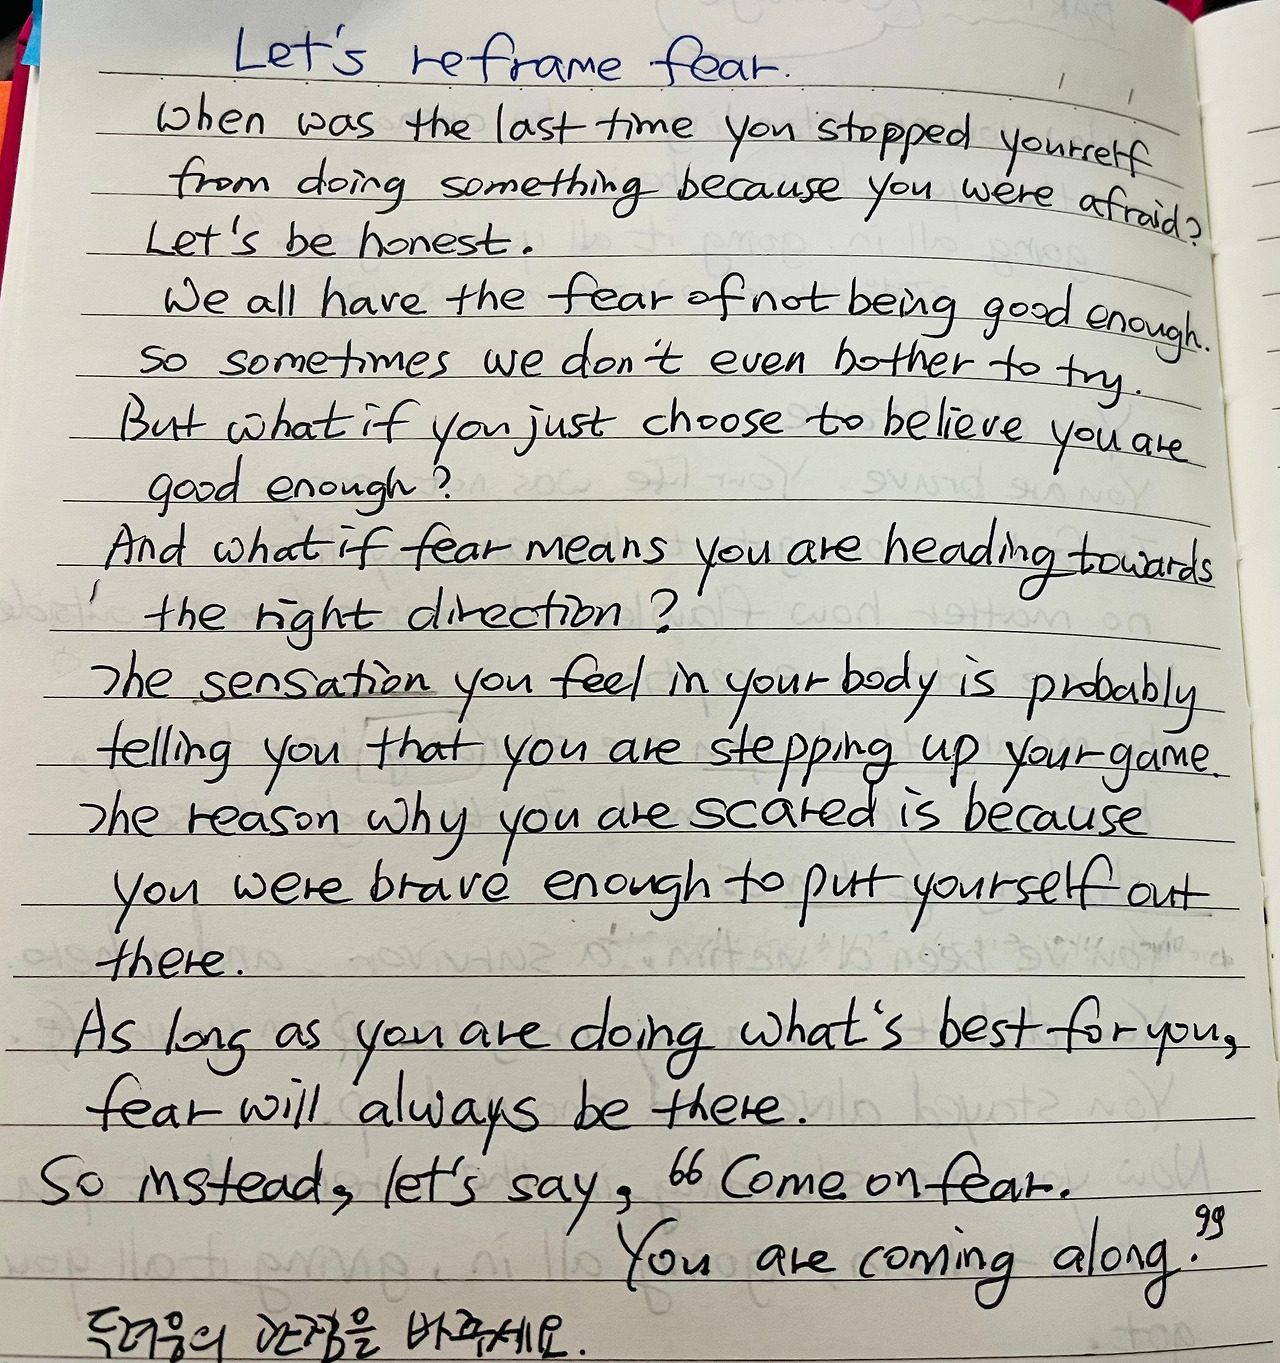 Let's reframe fear.
When was the last time you stopped yourself
from doing something because you were afraid?
Let's be honest.
We all have the fear of not being good enough.
So sometimes we don't even bother to try.
But what if you just choose to believe you are
good enough?
And what if fear means you are heading towards
the right direction?
The sensation you feel in your body is probably
telling you that you are stepping up your game.
The reason why you are scared is because
you were brave enough to put yourself out
there.
As long as you are doing what's best for you,
fear will always be there.
So instead, let's say, "Come on fear.
You are coming along."
두려움의 관점을 바꿔주세요.